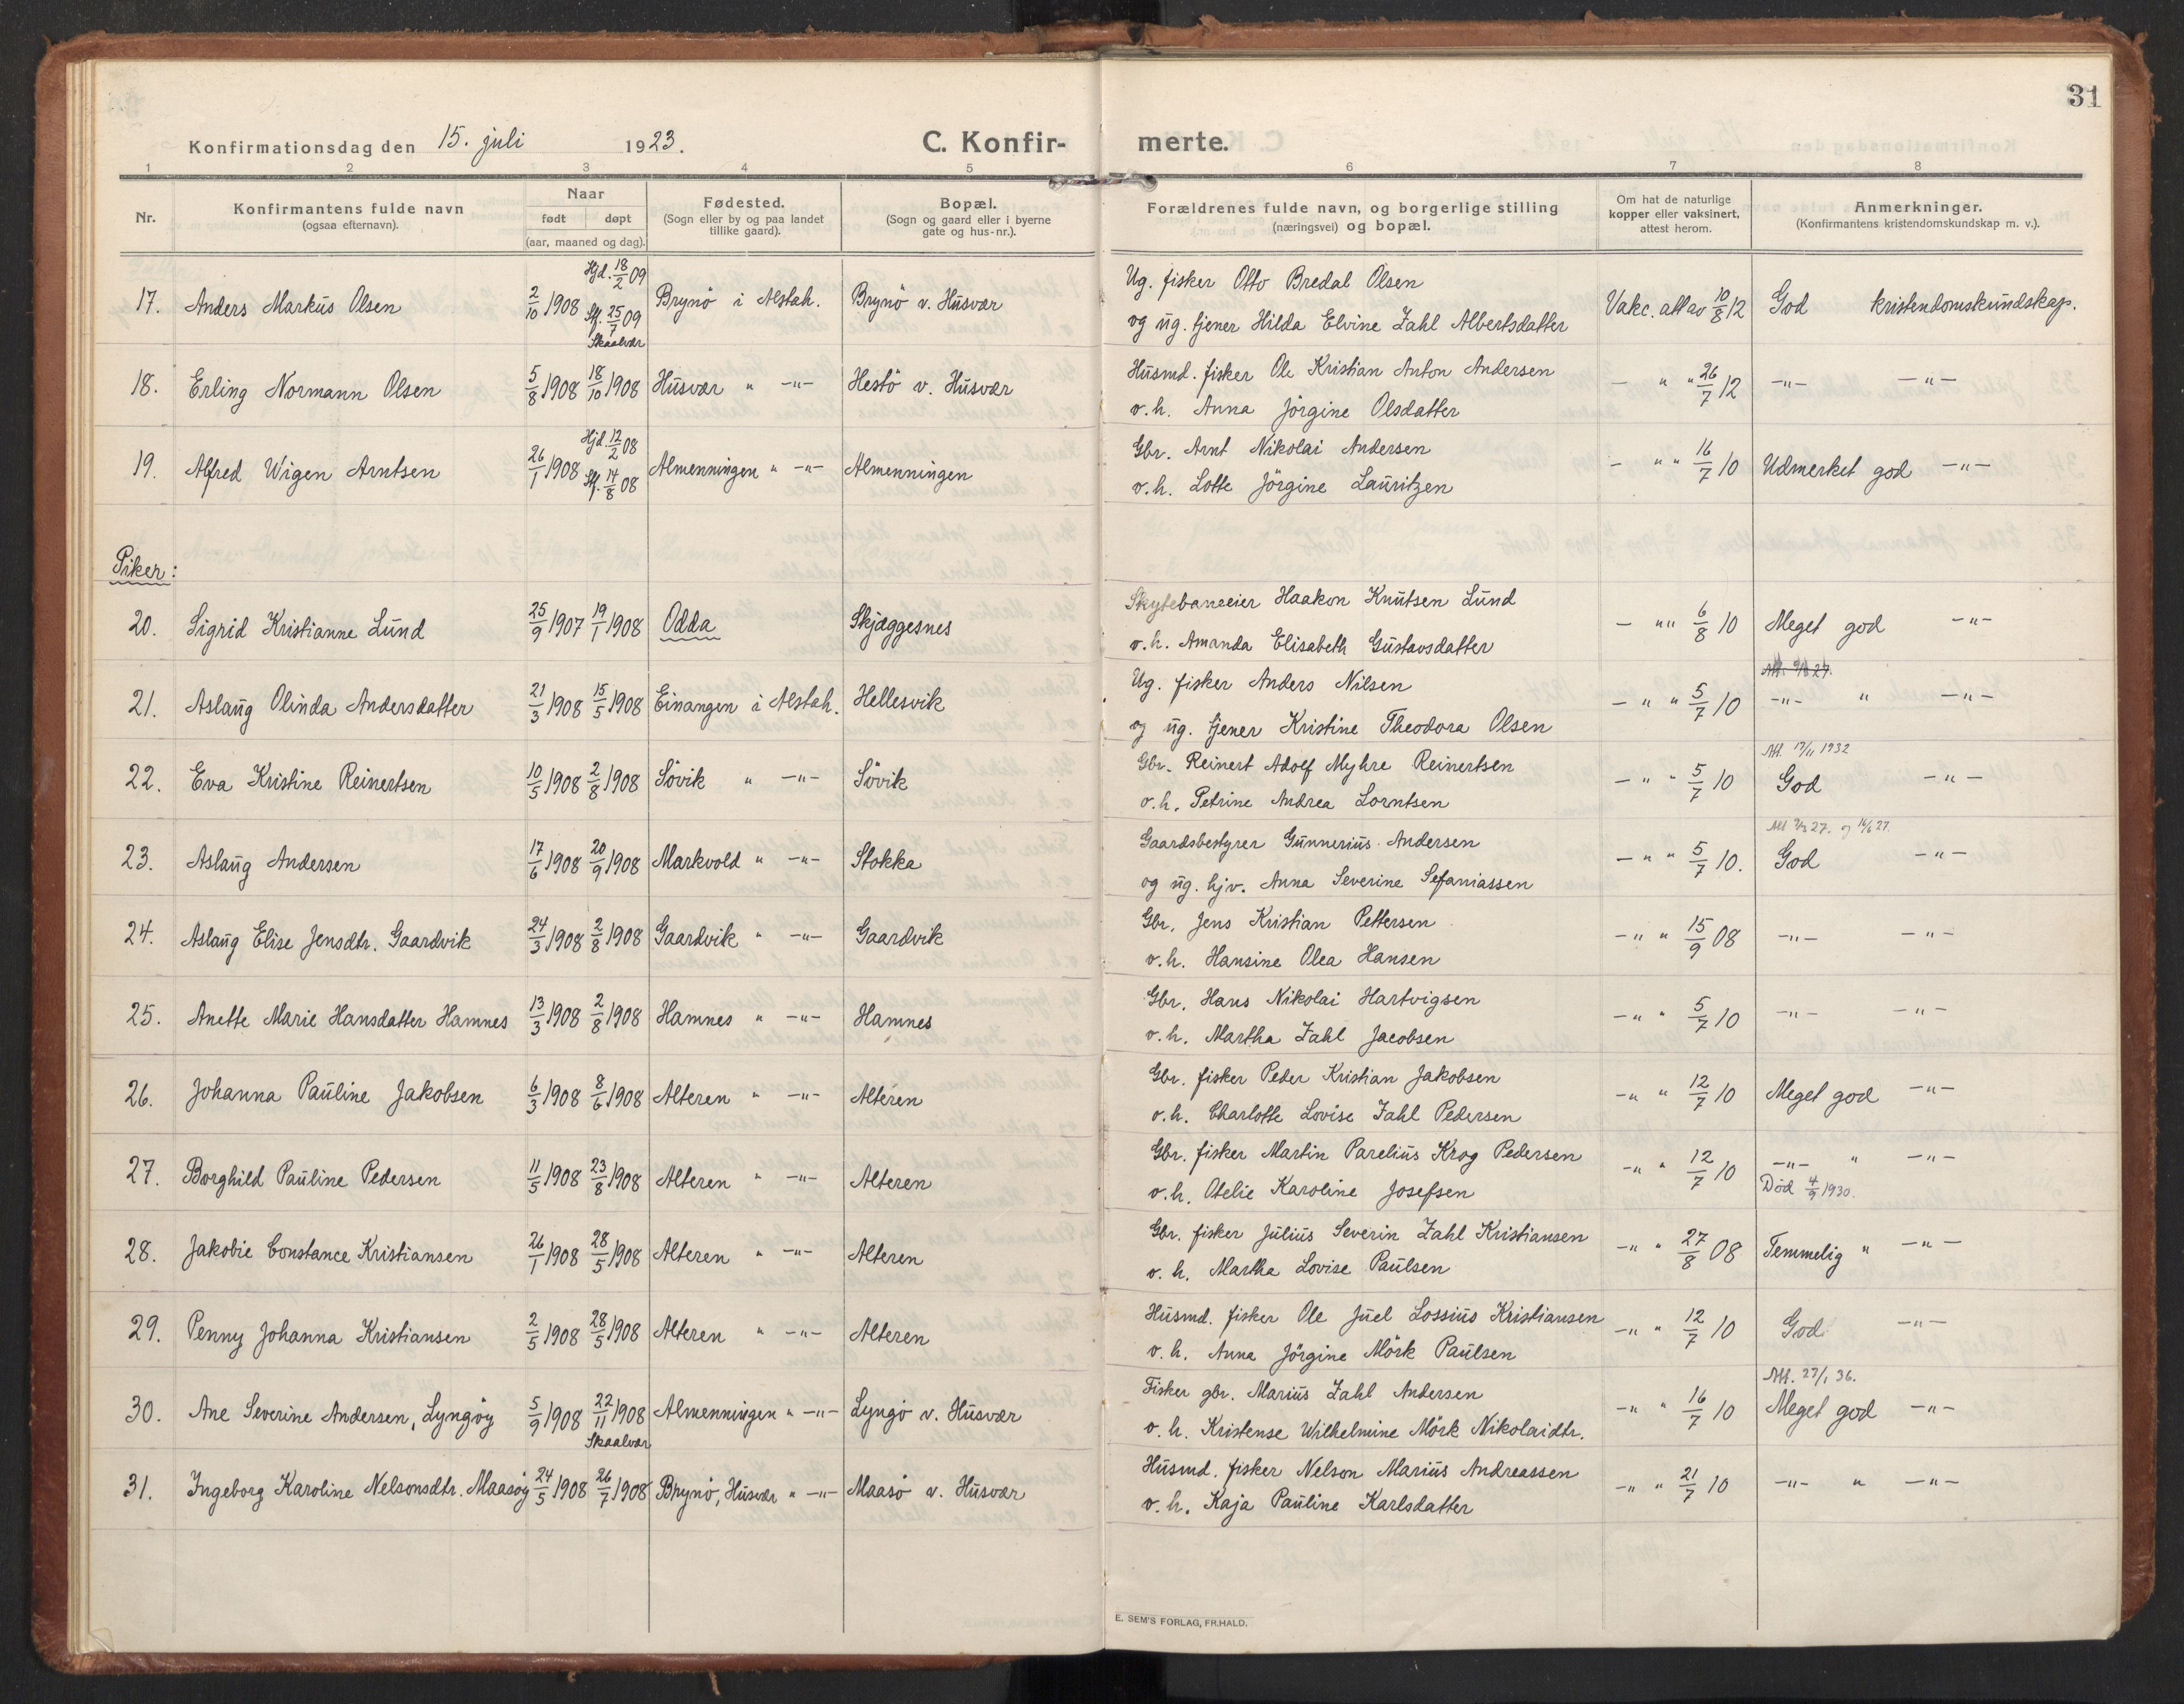 31
Konfirmationsdag den 15. juli 1923. C. Konfirmerte.
1 2 3 4 5 6 7 8
Nr. Konfirmantens fulde navn (ogsaa efternavn). Naar født døpt (aar, maaned og dag). Fødested. (Sogn eller by og paa landet tillike gaard). Bopæl. (Sogn og gaard eller i byerne gate og hus-nr.). Forældrenes fulde navn, og borgerlige stilling (næringsvei) og bopæl. Om hat de naturlige kopper eller vaksinert, attest herom. Anmerkninger. (Konfirmantens kristendomskundskap m. v.).
17. Anders Markus Olsen 2/10 1908 Hjd. 18/2 09 Stf. 25/7 09 Skaalvær Brynö i Alstah. Brynö v. Husvær Ug. fisker Otto Bredal Olsen
og ug. tjener Hilda Elvine Zahl Albertsdatter Vakc. att av 10/8 12 God kristendomskundskap.
18. Erling Normann Olsen 5/8 1908 18/10 1908 Husvær " -"- Hestö v. Husvær Husmd. fisker Ole Kristian Anton Andersen
o.h. Anna Jörgine Olsdatter - " " 26/7 12 -"- -"-
19. Alfred Wigen Arntsen 26/1 1908 Hjd. 12/2 08 Stf. 14/8 08 Almenningen " -"- Almenningen Gbr. Arnt Nikolai Andersen
o.h. Lotte Jörgine Lauritzen - " " 16/7 10 Udmerket god -"-
Piker:
20. Sigrid Kristianne Lund 25/9 1907 19/1 1908 Odda Skjæggesnes Skytebaneeier Haakon Knutsen Lund
o.h. Amanda Elisabeth Gustavsdatter - " " 6/8 10 Meget god -"-
21. Aslaug Olinda Andersdatter 21/3 1908 15/5 1908 Einangen i Alstah. Hellesvik Ug. fisker Anders Nilsen
og ug. tjener Kristine Theodora Olsen - " " 5/7 10 -"- " -"-
22. Eva Kristine Reinertsen 10/5 1908 2/8 1908 Sövik " -"- Sövik Gbr. Reinert Adolf Myhre Reinertsen
o.h. Petrine Andrea Lorntsen - " " 5/7 10 Att. 17/11 1932 God -"-
23. Aslaug Andersen 17/6 1908 20/9 1908 Markvold " -"- Stokka Gaardsbestyrer Gunnerius Andersen
og ug. hjv. Anna Severine Sefaniassen - " " 5/7 10. God -"-
24. Aslaug Elise Jensdtr. Gaardvik 24/3 1908 2/8 1908 Gaardvik " -"- Gaardvik Gbr. Jens Kristian Pettersen
o.h. Hansine Olea Hansen -" " 15/9 08 -"- -"-
25. Anette Marie Hansdatter Hamnes 13/3 1908 2/8 1908 Hamnes " -"- Hamnes Gbr. Hans Nikolai Hartvigsen
o.h. Martha Zahl Jacobsen -" " 5/7 10 -"- -"-
26. Johanna Pauline Jakobsen 6/3 1908 8/6 1908 Alteren " -"- Alteren Gbr. fisker Peder Kristian Jakobsen
o.h. Charlotte Lovise Zahl Pedersen -" " 12/7 10 Meget god -"-
27. Borghild Pauline Pedersen 11/5 1908 23/8 1908 Alteren " -"- Alteren Gbr. fisker Martin Parelius Krog Pedersen
o.h. Otelie Karoline Josefsen -" " 12/7 10 -"- " -"-
Död 4/9 1930.
28. Jakobie Constance Kristiansen 26/1 1908 28/5 1908 Alteren " -"- Alteren Gbr. fisker Julius Severin Zahl Kristiansen
o.h. Martha Lovise Paulsen -" " 27/8 08 Temmelig " -"-
29. Penny Johanna Kristiansen 2/5 1908 28/5 1908 Alteren " -"- Alteren Husmd. fisker Ole Juel Lossius Kristiansen
o.h. Anna Jörgine Mörk Paulsen -" " 12/7 10 God -"-
30. Ane Severine Andersen, Lyngöy 5/9 1908 22/11 1908 Skaalvær Almenningen " -"- Lyngö v. Husvær Fisker gbr. Marius Zahl Andersen
o.h. Kristense Wilhelmine Mörk Nikolaidtr. -" " 16/7 10 Att. 27/1 36. Meget god -"-
31. Ingeborg Karoline Nelsonsdtr. Maasöy 24/5 1908 26/7 1908 Brynö, Husvær " -"- Maasö v. Husvær Husmd. fisker Nelson Marius Andreassen
o.h. Kaja Pauline Karlsdatter -" " 21/7 10 -"- " -"-
E. SEM'S FORLAG, FR.HALD.